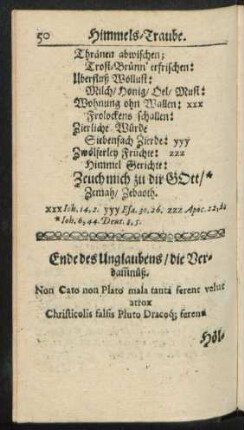 50 Himmels-Traube.
Thränen abwischen;
Trost-Brünn' erfrischen:
Uberfluß Wollust:
Milch/ Honig/ Oel/ Must:
Wohnung ohn Wallen: xxx
Frolockens schallen:
Zierliche Würde
Siebenfach Zierde: yyy
Zwölferley Früchte: zzz
Himmel Gerichte:
Zeuch mich zu dir GOtt/*
Zemah/ Zebaoth.
xxx Ioh. 14, 2. yyy Esa. 30, 26. zzz Apoc. 22,
* Ioh. 6, 44. Deut. 8, 5.
Ende des Unglaubens/ die Ver-
damnüß.
Non Cato non Plato mala tanta ferent velut
atrox
Christicolis falsis Pluto Dracoq; ferent
Höl-